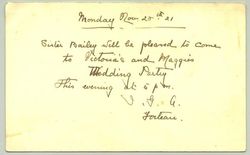 Monday Nov 28th 21
Sister Bailey will be pleased to come
to Victoria's and Maggies
Wedding Party
This evening at 5 pm.